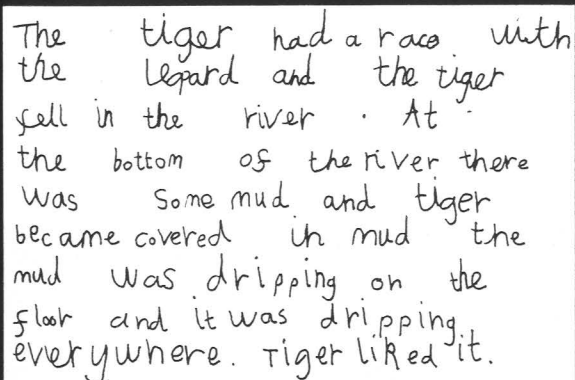 The tiger had a race with
the lepard and the tiger
fell in the river. At
the bottom of the river there
was some mud and tiger
became covered in mud the
mud was dripping on the
floor and it was dripping
everywhere. Tiger liked it.